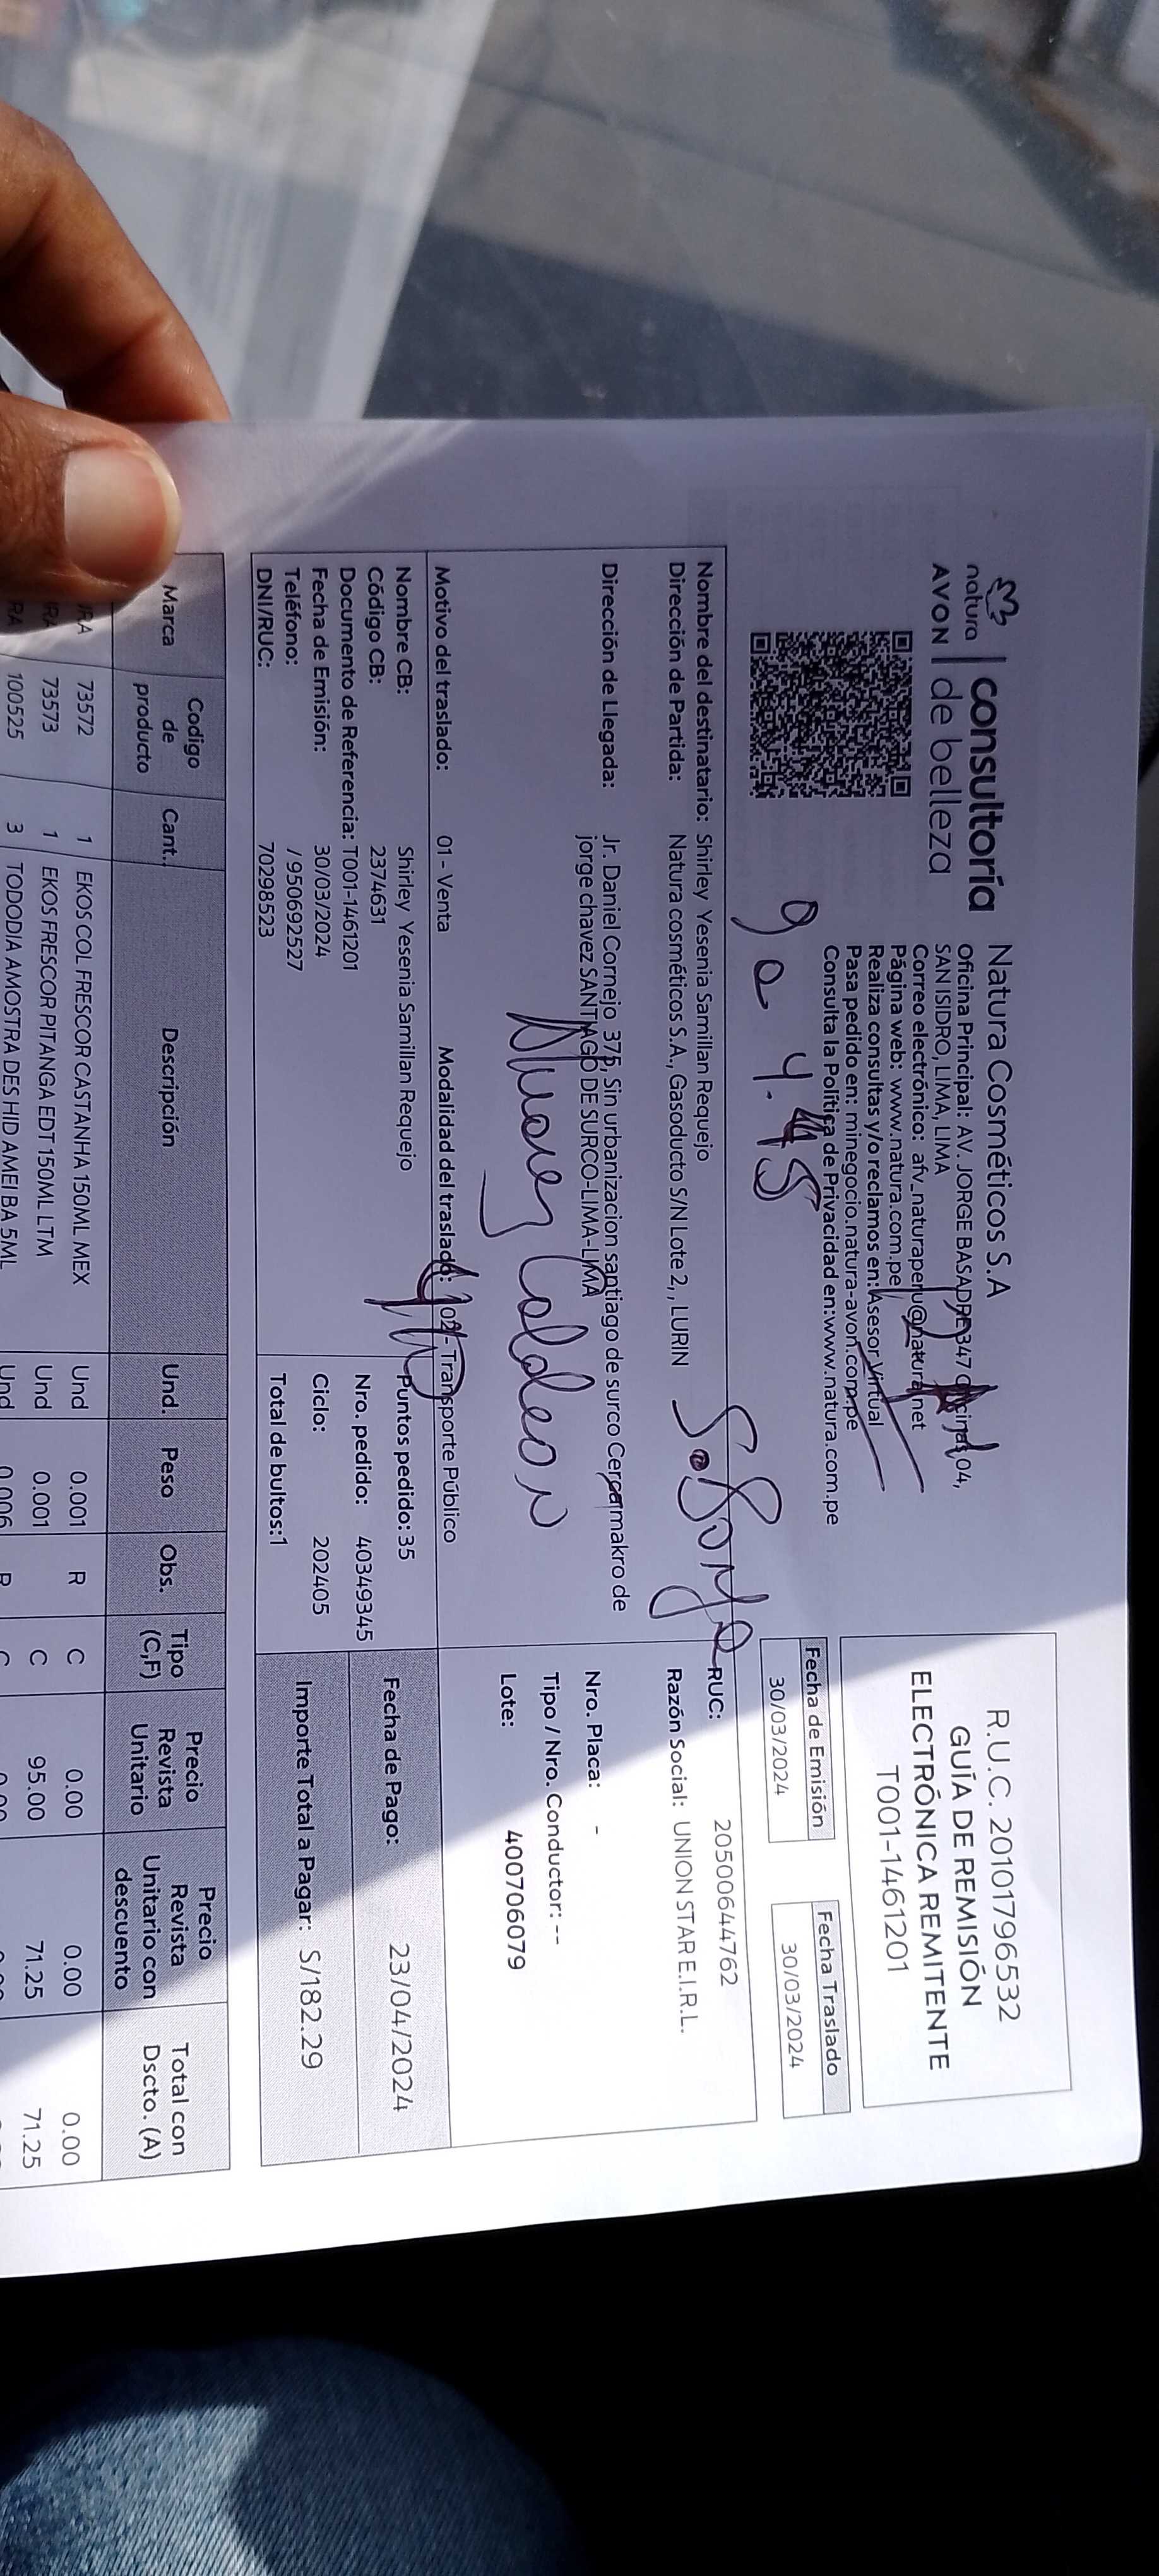 natura
AVON
consultoría
de belleza
Natura Cosméticos S.A
Oficina Principal: AV. JORGE BASADRE 347 04,
SAN ISIDRO, LIMA, LIMA
Correo electrónico: afv_naturaperu@natura.net
Página web: www.natura.com.pe
Realiza consultas y/o reclamos en: Asesor Virtual
Pasa pedido en: minegocio.natura-avon.com.pe
Consulta la Política de Privacidad en:www.natura.com.pe
R.U.C. 20101796532
GUÍA DE REMISIÓN
ELECTRÓNICA REMITENTE
T001-1461201
Fecha de Emisión
30/03/2024
Fecha Traslado
30/03/2024
9 a 4.45
Nombre del destinatario: Shirley Yesenia Samillan Requejo
Dirección de Partida: Natura cosméticos S.A., Gasoducto S/N Lote 2, , LURIN
Dirección de Llegada: Jr. Daniel Cornejo 375, Sin urbanizacion santiago de surco Cerca makro de
jorge chavez SANTIAGO DE SURCO-LIMA-LIMA
RUC: 20500644762
Razón Social: UNION STAR E.I.R.L.
Nro. Placa: -
Tipo / Nro. Conductor: --
Lote: 400706079
Motivo del traslado: 01 - Venta
Modalidad del traslado: 02 - Transporte Público
Nombre CB: Shirley Yesenia Samillan Requejo
Código CB: 2374631
Documento de Referencia: T001-1461201
Fecha de Emisión: 30/03/2024
Teléfono: / 950692527
DNI/RUC: 70298523
Puntos pedido: 35
Nro. pedido: 40349345
Ciclo: 202405
Total de bultos:1
Fecha de Pago: 23/04/2024
Importe Total a Pagar: S/182.29
Marca Codigo de producto Cant. Descripción Und. Peso Obs. Tipo (C,F) Precio Revista Unitario Precio Revista Unitario con descuento Total con Dscto. (A)
73572 1 EKOS COL FRESCOR CASTANHA 150ML MEX Und 0.001 R C 0.00 0.00 0.00
73573 1 EKOS FRESCOR PITANGA EDT 150ML LTM Und 0.001 C 95.00 71.25 71.25
100525 3 TODODIA AMOSTRA DES HID AMEI BA 5ML Und 0.006 R C